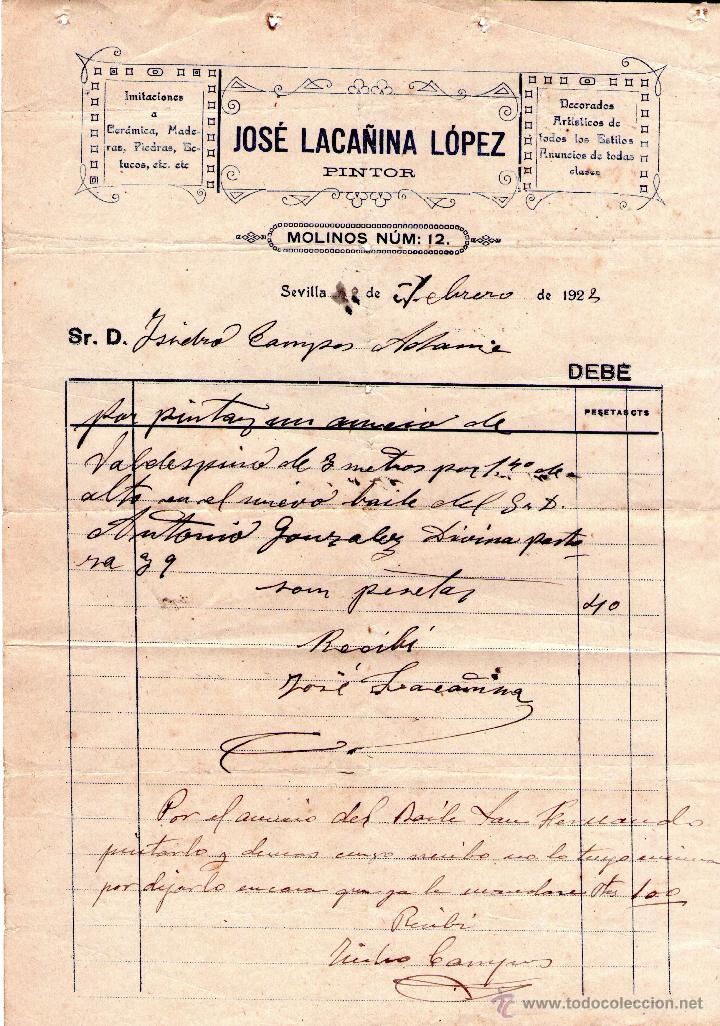 Imitaciones
a
Cerámica, Made-
ras, Piedras, Es-
tucos, etc. etc
JOSÉ LACAÑINA LÓPEZ
PINTOR
Decorados
Artísticos de
todos los Estilos
Anuncios de todas
clases
MOLINOS NÚM: 12.
Sevilla de Febrero de 1922
Sr. D. Isidro Campos Adame
DEBE
PESETAS CTS
por pintar un anuncio de
Valdespino de 3 metros por 1'40 de
alto en el nuevo baile del Sr D.
Antonio Gonzalez Divina pasto
ra 39
son pesetas 40
Recibí
José Lacañina
Por el anuncio del Baile San Fernando
pintarlo y demas cuyo recibo no lo tengo
por dejarlo en casa que ya le mandare 100
Recibí
Isidro Campos
www.todocoleccion.net